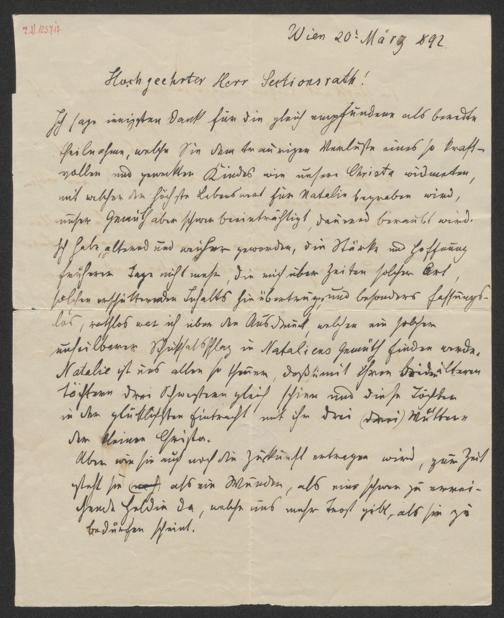 Wien 20t März 892
Hochgeehrter Herr Sectionsrath!
Ich sage innigsten Dank für die gleich empfundene als beredte
Theilnahme, welche Sie dem traurigen Verluste eines so kraft-
vollen und geweckten Kindes wie unsere Christa widmeten,
mit welcher der höchste Lebenswert für Natalie begraben wird,
unser Gemüth aber schwer beeinträchtigt, dauernd beraubt wird.
Ich habe, alternd und geworden, die Stärke und Hoffnung
früherer Tage nicht mehr die mich über Zeiten solcher Art,
solchen erschütternden Inhalts hinübertrug, und besonders fassungs-
los, rathlos war ich über den Ausdruck welchen ein solcher
unheilbarer Schicksalsschlag in Nataliens Gemüth finden werde.
Natalie ist uns allen so theuer, daß mit ihren beiden älteren
Töchtern drei Schwestern gleich schien und diese Töchter
in der glücklichsten Eintracht mit ihr drei (drei) Mütter
der kleinen Christa.
Aber wie sie auch noch die Zukunft ertragen wird, zur Zeit
steht sie als ein Wunder, als eine schwer zu errei-
chende Heldin da, welche uns mehr Trost gibt, als sie zu
bedürfen scheint.